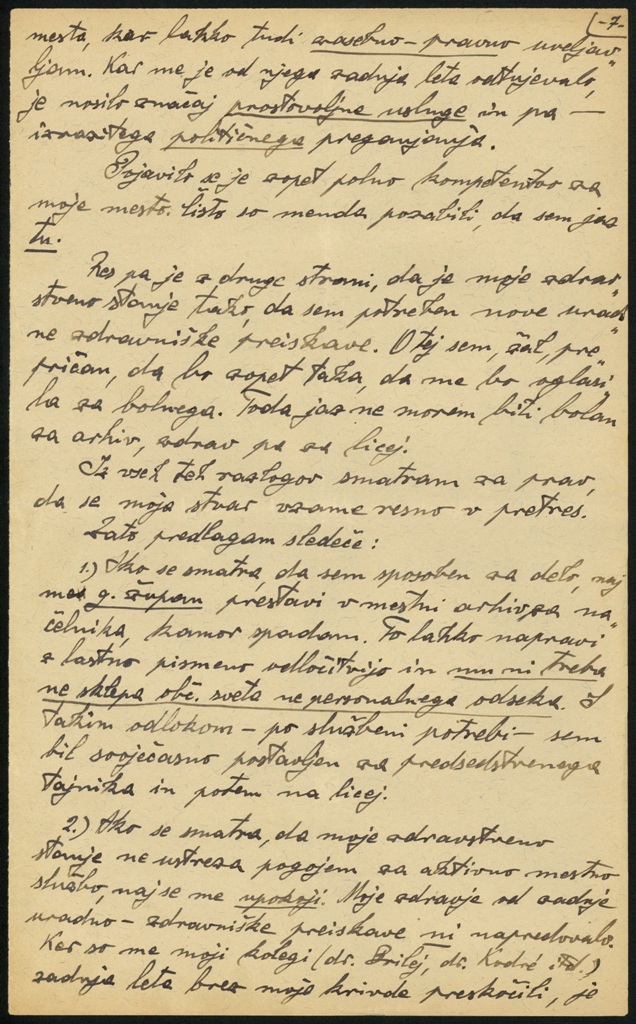 -7-
mesta, kar lahko tudi zasebno-pravno uveljav"
ljam. Kar me je od njega zadnja leta odtujevalo,
je nosilo značaj prostovoljne usluge in pa —
izrazitega političnega preganjanja.
Pojavilo se je zopet polno kompetentov za
moje mesto. Čisto so menda pozabili, da sem jaz
tu.
Res pa je z druge strani, da je moje zdrav"
stveno stanje tako, da sem potreben nove urad"
ne zdravniške preiskave. O tej sem, žal, pre"
pričan, da bo zopet taka, da me bo oglasi"
la za bolnega. Toda jaz ne morem biti bolan
za arhiv, zdrav pa za licej.
Iz vseh teh razlogov smatram za prav,
da se moja stvar vzame resno v pretres.
Zato predlagam sledeče:
1.) Ako se smatra, da sem sposoben za delo, naj
me g. župan prestavi v mestni arhiv za na"
čelnika, kamor spadam. To lahko napravi
z lastno pismeno odločitvijo in mu ni treba
ne sklepa obč. sveta ne personalnega odseka. S
takim odlokom - po službeni potrebi - sem
bil svoječasno postavljen za predsedstvenega
tajnika in potem na licej.
2.) Ako se smatra, da moje zdravstveno
stanje ne ustreza pogojem za aktivno mestno
službo, naj se me upokoji. Moje zdravje od zadnje
uradno-zdravniške preiskave ni napredovalo.
Ker so me moji kolegi (dr. Brilej, dr. Kodré itd.)
zadnja leta brez moje krivde preskočili, je